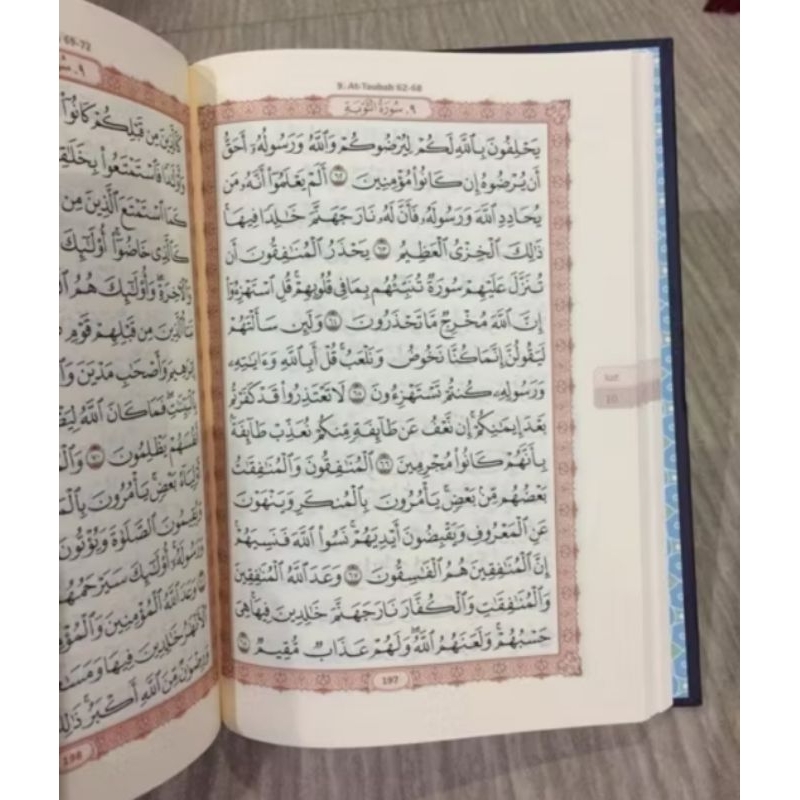 9. At-Taubah 62-68
٩. سُورَةُ التَّوْبَةِ
يَحْلِفُونَ بِٱللَّهِ لَكُمْ لِيُرْضُوكُمْ وَٱللَّهُ وَرَسُولُهُۥٓ أَحَقُّ
أَن يُرْضُوهُ إِن كَانُوا۟ مُؤْمِنِينَ ٦٢ أَلَمْ يَعْلَمُوٓا۟ أَنَّهُۥ مَن
يُحَادِدِ ٱللَّهَ وَرَسُولَهُۥ فَأَنَّ لَهُۥ نَارَ جَهَنَّمَ خَٰلِدًا فِيهَا ۚ
ذَٰلِكَ ٱلْخِزْىُ ٱلْعَظِيمُ ٦٣ يَحْذَرُ ٱلْمُنَٰفِقُونَ أَن
تُنَزَّلَ عَلَيْهِمْ سُورَةٌ تُنَبِّئُهُم بِمَا فِى قُلُوبِهِمْ ۚ قُلِ ٱسْتَهْزِءُوٓا۟
إِنَّ ٱللَّهَ مُخْرِجٌ مَّا تَحْذَرُونَ ٦٤ وَلَئِن سَأَلْتَهُمْ
لَيَقُولُنَّ إِنَّمَا كُنَّا نَخُوضُ وَنَلْعَبُ ۚ قُلْ أَبِٱللَّهِ وَءَايَٰتِهِۦ
وَرَسُولِهِۦ كُنتُمْ تَسْتَهْزِءُونَ ٦٥ لَا تَعْتَذِرُوا۟ قَدْ كَفَرْتُم
بَعْدَ إِيمَٰنِكُمْ ۚ إِن نَّعْفُ عَن طَآئِفَةٍ مِّنكُمْ نُعَذِّبْ طَآئِفَةًۢ
بِأَنَّهُمْ كَانُوا۟ مُجْرِمِينَ ٦٦ ٱلْمُنَٰفِقُونَ وَٱلْمُنَٰفِقَٰتُ
بَعْضُهُم مِّنۢ بَعْضٍ ۚ يَأْمُرُونَ بِٱلْمُنكَرِ وَيَنْهَوْنَ
عَنِ ٱلْمَعْرُوفِ وَيَقْبِضُونَ أَيْدِيَهُمْ ۚ نَسُوا۟ ٱللَّهَ فَنَسِيَهُمْ ۗ
إِنَّ ٱلْمُنَٰفِقِينَ هُمُ ٱلْفَٰسِقُونَ ٦٧ وَعَدَ ٱللَّهُ ٱلْمُنَٰفِقِينَ
وَٱلْمُنَٰفِقَٰتِ وَٱلْكُفَّارَ نَارَ جَهَنَّمَ خَٰلِدِينَ فِيهَا ۚ هِىَ
حَسْبُهُمْ ۚ وَلَعَنَهُمُ ٱللَّهُ ۖ وَلَهُمْ عَذَابٌ مُّقِيمٌ ٦٨
197
Juz
10
69-72
٩. سُو
كَٱلَّذِينَ مِن قَبْلِكُمْ كَانُوٓا۟
وَأَوْلَٰدًا فَٱسْتَمْتَعُوا۟ بِخَلَٰقِ
كَمَا ٱسْتَمْتَعَ ٱلَّذِينَ مِن
كَٱلَّذِى خَاضُوٓا۟ ۚ أُو۟لَٰٓئِكَ
وَٱلْءَاخِرَةِ ۖ وَأُو۟لَٰٓئِكَ هُمُ
نَبَأُ ٱلَّذِينَ مِن قَبْلِهِمْ قَوْمِ
إِبْرَٰهِيمَ وَأَصْحَٰبِ مَدْيَنَ
بِٱلْبَيِّنَٰتِ ۖ فَمَا كَانَ ٱللَّهُ
أَنفُسَهُمْ يَظْلِمُونَ ٧٠
أَوْلِيَآءُ بَعْضٍ ۚ يَأْمُرُونَ
وَيُقِيمُونَ ٱلصَّلَوٰةَ وَيُؤْتُونَ
وَرَسُولَهُۥٓ ۚ أُو۟لَٰٓئِكَ سَيَرْحَمُهُمُ
وَعَدَ ٱللَّهُ ٱلْمُؤْمِنِينَ
ٱلْأَنْهَٰرُ خَٰلِدِينَ فِيهَا
وَرِضْوَٰنٌ مِّنَ ٱللَّهِ أَكْبَرُ ۚ ذَٰلِكَ
198